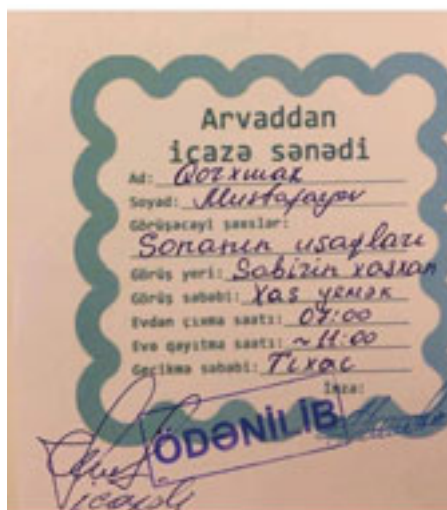 Arvaddan
icazə sənədi
Ad: Qorxmaz
Soyad: Mustafayev
Görüşəcəyi şəxslər:
Sonanın uşaqları
Görüş yeri: Sabirin xaşxan
Görüş səbəbi: Xaş yemək
Evdən çıxma saatı: 07:00
Evə qayıtma saatı: ~ 11:00
Gecikmə səbəbi: Tıxac
İmza:
ÖDƏNİLİB